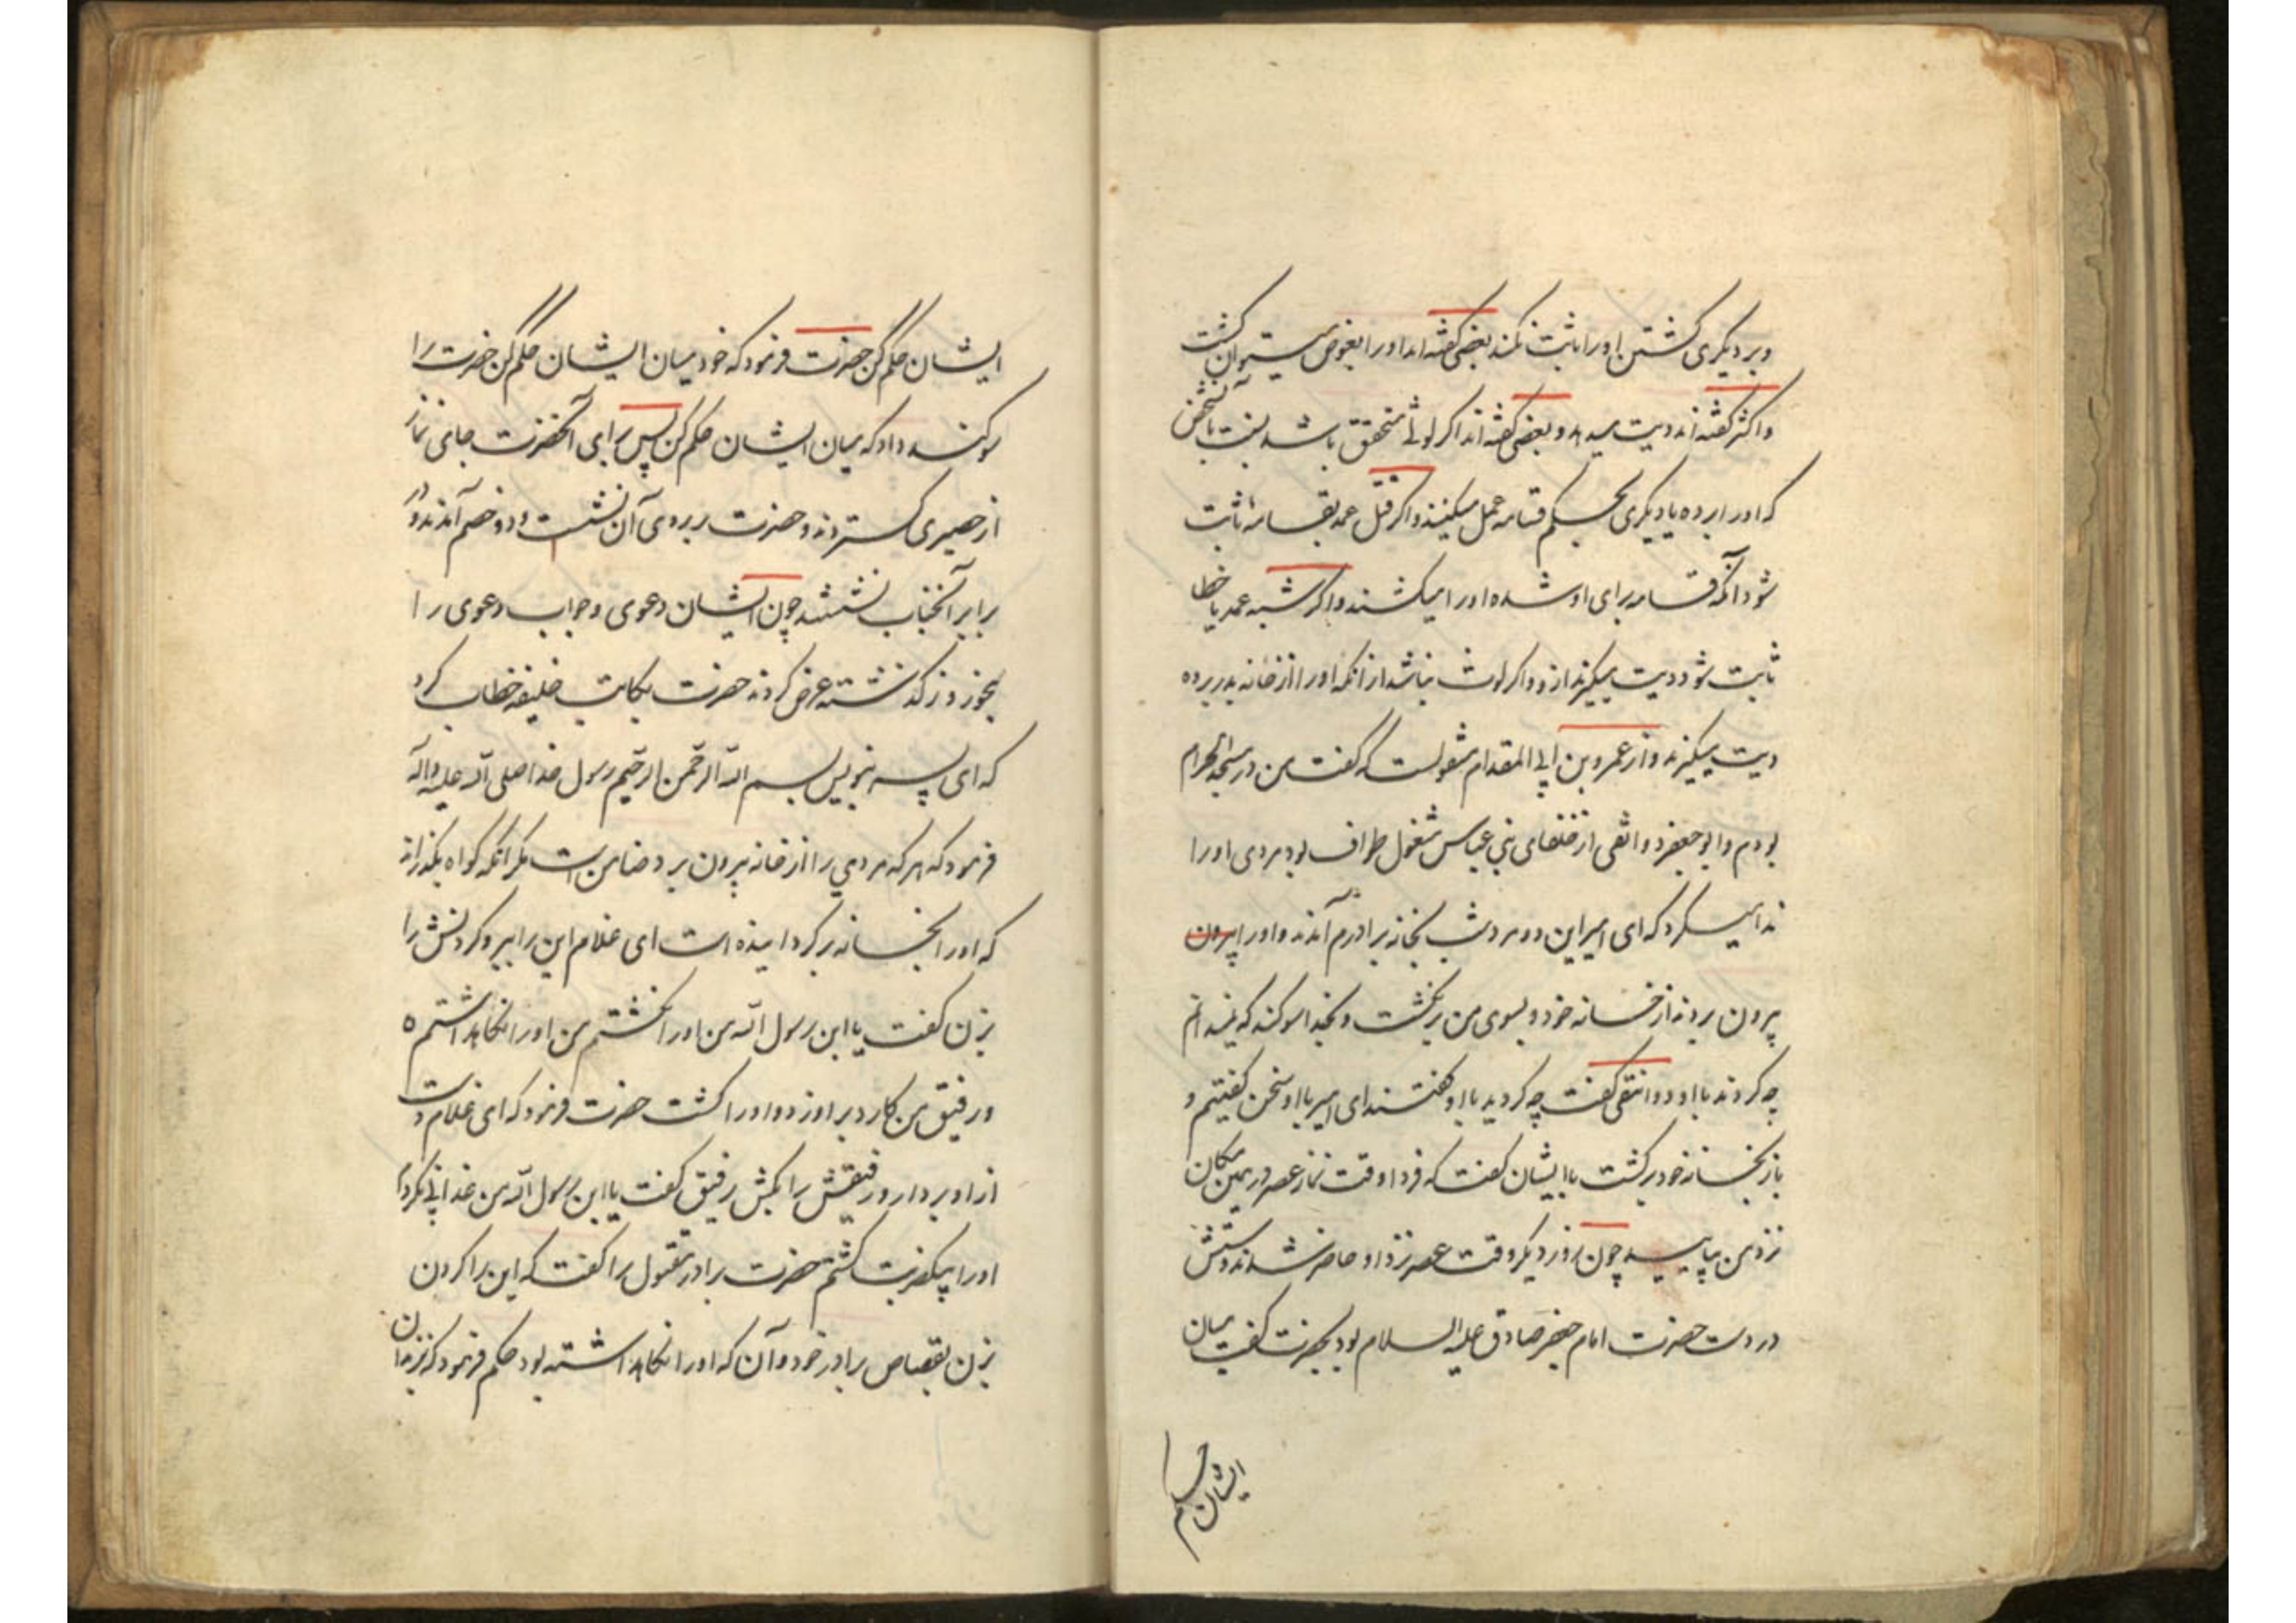 و بر دیگری کشتن او را ثابت نکند بعضی گفته‌اند او را بعوض میتوان کشت
و اکثر گفته‌اند دیت میدهد و بعضی گفته‌اند اگر لوثی متحقق باشد بنسبت بآنشخص
که او را برده یا دیگری بحکم قسامه عمل میکنند و اگر قتل عمد بقسامه ثابت
شود آنکه قسامه برای او شده او را میکشند و اگر شبه عمد یا خطا
ثابت شود دیت میگیرند ازو و اگر لوث نباشد از آنکه او را از خانه بدر برده
دیت میگیرند و از عمرو بن ابی المقدام منقولست که گفت من در مسجد الحرام
بودم و ابو جعفر دوانقی از خلفای بنی عباس مشغول طواف بود مردی او را
ندا میکرد که ای امیر این دو مرد شب بخانه برادرم آمدند و او را بیرون
بیرون بردند از خانه خود و بسوی من برنگشت و بخدا سوگند که نمیدانم
چه کردند با او دوانقی گفت چه کردید با او گفتند ای امیر با او سخن گفتیم و
باز بخانه خود برگشت با ایشان گفت که فردا وقت نماز عصر در همین مکان
نزد من بیایید چون روز دیگر وقت عصر نزد او حاضر شدند و دستش
در دست حضرت امام جعفر صادق علیه السلام بود بحضرت گفت میان
ایشان حکم
ایشان حکم کن حضرت فرمود که خود میان ایشان حکم کن حضرت را
سوگند داد که میان ایشان حکم کن پس برای آنحضرت جای نماز
از حصیری گستردند و حضرت بر روی آن نشست و دو خصم آمدند و در
برابر آنجناب نشستند چون ایشان دعوی و جواب دعوی را
بنحو روز گذشته عرض کردند حضرت بکاتب خلیفه خطاب کرد
که ای پسر بنویس بسم الله الرحمن الرحیم رسول خدا صلی الله علیه و آله
فرمود که هر که مردی را از خانه بیرون برد ضامن است مگر آنکه گواه بگذراند
که او را بخانه برگردانیده است ای غلام این را ببر و گردنش را
بزن گفت یا ابن رسول الله من او را نکشتم من او را نگاهداشتم
و رفیق من کارد بر او زد و او را کشت حضرت فرمود که ای غلام دست
از او بردار و رفیقش را بکش رفیق گفت یا ابن رسول الله من عذابی نکردم
او را بیکضربت کشتم حضرت برادر مقتول را گفت که این را گردن
بزن بقصاص برادر خود و آن که او را نگاهداشته بود حکم فرمود که بزندان